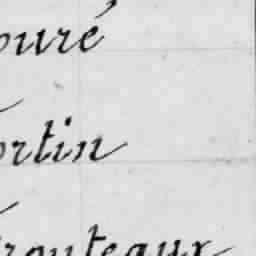 ouré
ortin
routeaux